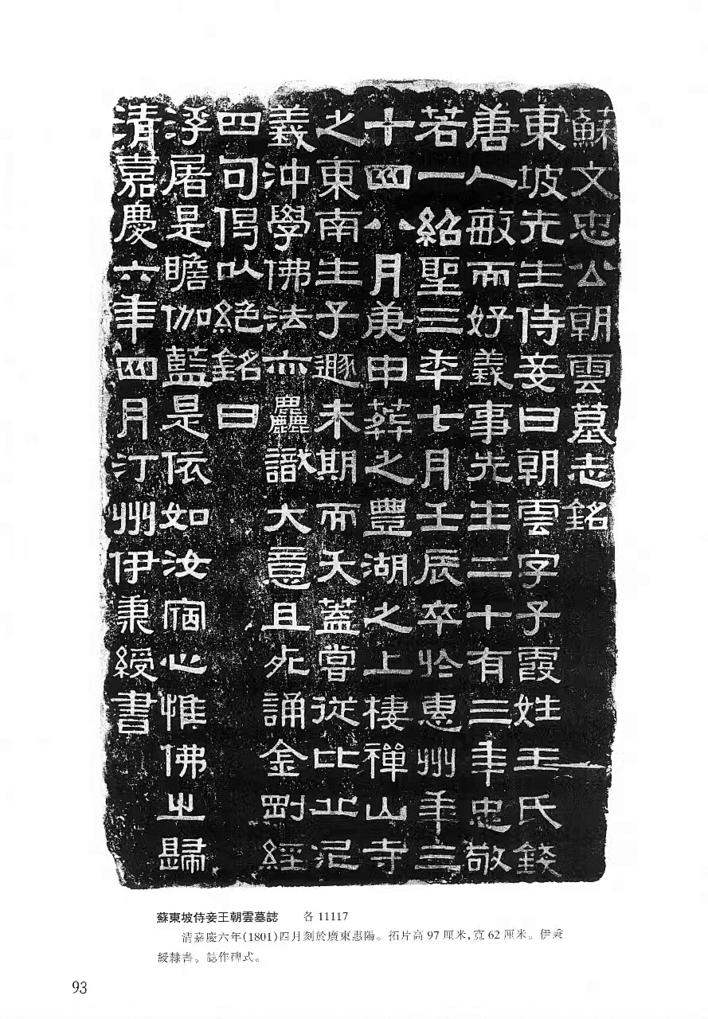 蘇文忠公朝雲墓志銘
東坡先生侍妾曰朝雲字子霞姓王氏錢
唐人敏而好義事先生二十有三年忠敬
若一紹聖三秊七月壬辰卒於惠州年三
十四八月庚申葬之豐湖之上棲禪山寺
之東南生子遯未期而夭蓋嘗從比丘尼
義沖學佛法亦麤識大意且死誦金剛經
四句偈以絕銘曰
浮屠是瞻伽藍是依如汝宿心惟佛之歸
清嘉慶六年四月汀州伊秉綬書
蘇東坡侍妾王朝雲墓誌 各11117
清嘉慶六年(1801)四月刻於廣東惠陽。拓片高97厘米,寬62厘米。伊秉
綬隸書。誌作碑式。
93